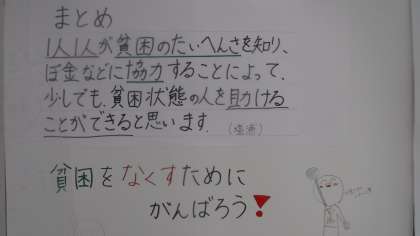 まとめ
1人1人が貧困のたいへんさを知り、
ぼ金などに協力することによって、
少しでも、貧困状態の人を助ける
ことができると思います。
貧困をなくすために
がんばろう!